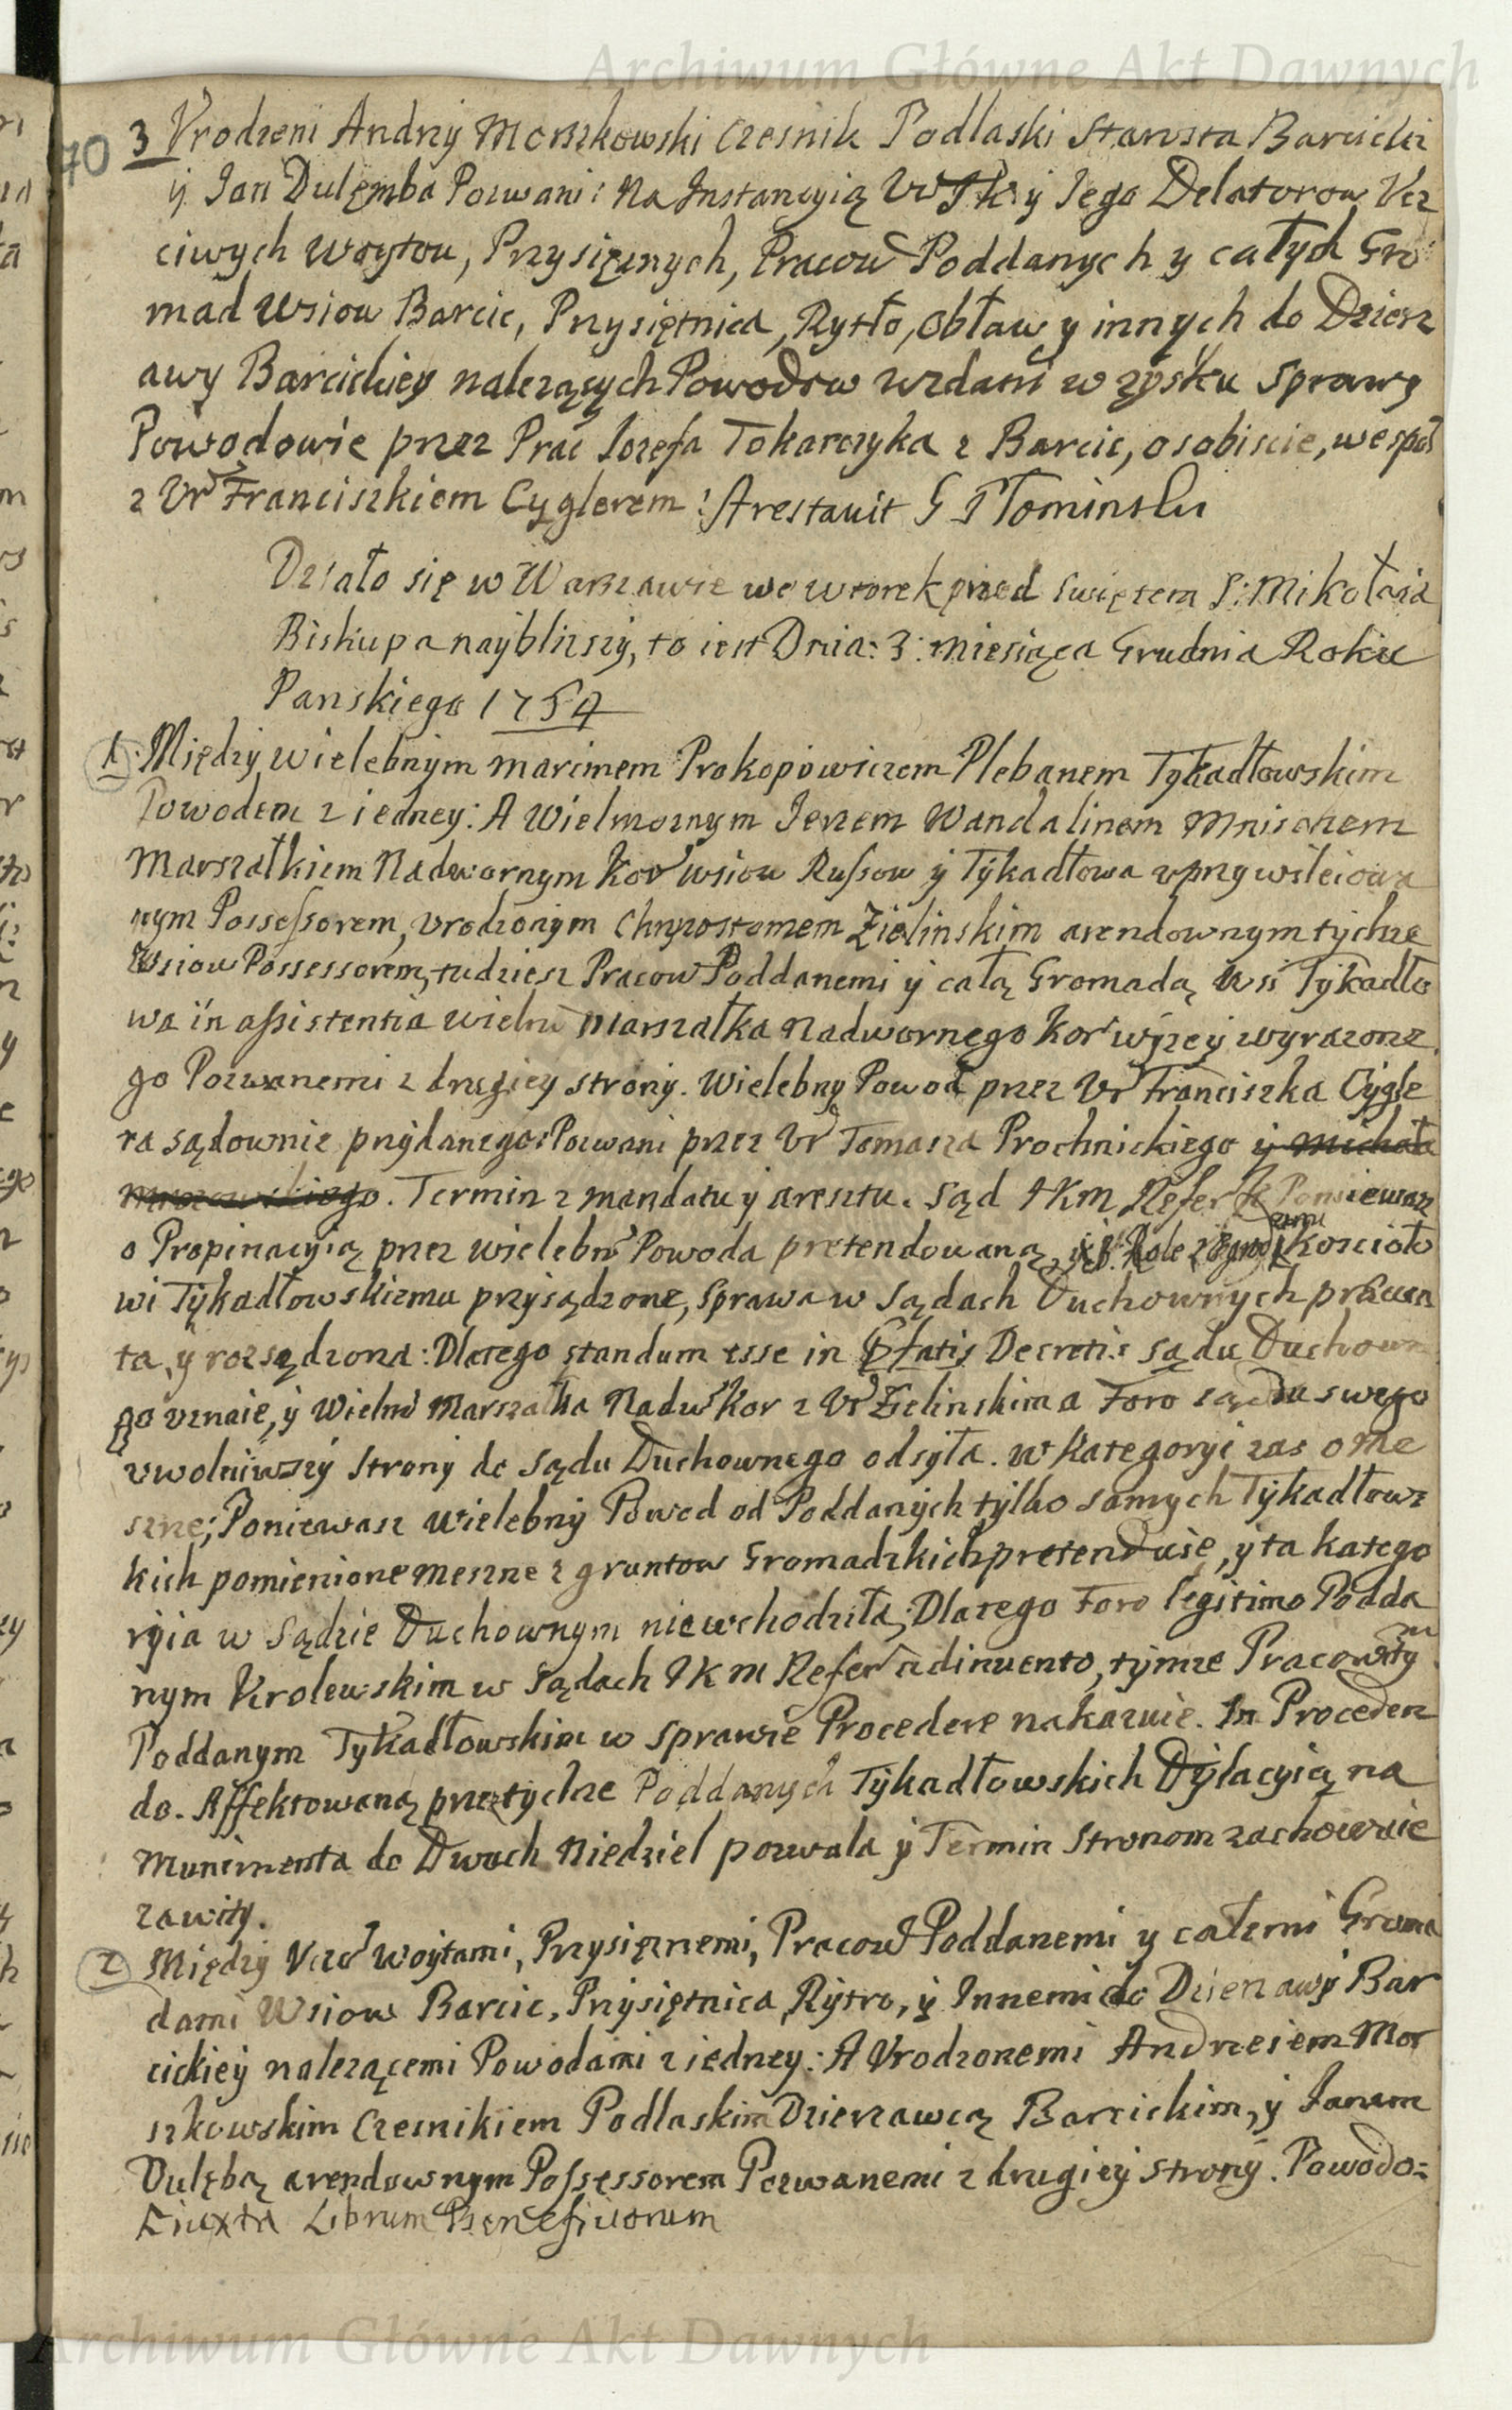 Archiwum Główne Akt Dawnych
70 3 Vrodzeni Andrzy Morszkowski Czesnik Podlaski Starosta Barcicki
y Jan Dulęmba Pozwani: Na Instancyią Ur I K y Jego Delatorow Ucz
ciwych Woytow, Przysięznych, Pracow Poddanych y całych Gro
mad Wsiow Barcic, Przysiętnica, Rytło, Obław y innych do Dzierz
awy Barcickiey nalezących Powodow wzdani w zysku sprawy
Powodowie przez Prac Jozefa Tokarczyka z Barcic, osobiscie, wespoł
z Ur Franciszkiem Cyglerem: Arestavit G Słominski
Działo się w Warszawie we wtorek przed swiętem S: Mikołaia
Biskupa naybliszy, to iest Dnia: 3: Miesiąca Grudnia Roku
Panskiego 1754
1. Między Wielebnym Marcinem Prokopowiczem Plebanem Tykadłowskim
Powodem z iedney: A Wielmoznym Jerzem Wandalinem Mniszchem
Marszałkiem Nadwornym Kor Wsiow Russow y Tykadłowa uprzywileiowa
nym Possessorem, Urodzonym Chryzostomem Zielinskim arendownym tychze
Wsiow Possessorem, tudziesz Pracow Poddanemi y całą Gromadą Wsi Tykadło
wa in assistentia Wielm Marszałka Nadwornego Kor wyzey wyrazone
go Pozwanemi z drugiey strony. Wielebny Powod przez Ur Franciszka Cygle
ra sądownie przydanego: Pozwani przez Ur Tomasza Prochnickiego y Michała
. Termin z mandatu y aresztu. Sąd J K M Refer Poniewasz
o Propinacyią przez Wielebn Powoda pretendowaną, Role kościoło
wi Tykadłowskiemu przysądzone, sprawa w Sądach Duchownych
ta, y rozsądzona: Dlatego standum esse in Decretis sądu Duchowne
go uznaie, y Wielm Marszałka Nadw Kor z Ur Zielinskim a Foro sądu swego
uwolniwszy strony do sądu Duchownego odsyła. W Kategoryi zas o Me
szne; Poniewasz Wielebny Powod od Poddanych tylko samych Tykadłows
kich pomienione Meszne z gruntow Gromadzkich pretenduie, y ta katego
ryia w Sądzie Duchownym niewchodziła; Dlatego Foro legitimo Podda
nym Krolewskim w Sądach J K M Refer adinvento, tymze Pracowitym
Poddanym Tykadłowskim w sprawie Procedere nakazuie. In Proceden
do. Affektowaną przez tychze Poddanych Tykadłowskich Dylacyią na
Munimenta do Dwuch Niedziel pozwala y Termin Stronom zachowuie
zawity.
2 Między Ucz Woytami, Przysięznemi, Pracow Poddanemi y całemi Groma
dami Wsiow Barcic, Przysiętnica, Rytro, y Innemi do Dzierzawy Bar
cickiey nalezącemi Powodami z iedney: A Urodzonemi Andrzeiem Mor
szkowskim Czesnikiem Podlaskim Dzierzawcą Barcickim, y Janem
Dulębą arendownym Possessorem Pozwanemi z drugiey strony. Powodo=
iuxta Librum Beneficiorum
Archiwum Główne Akt Dawnych